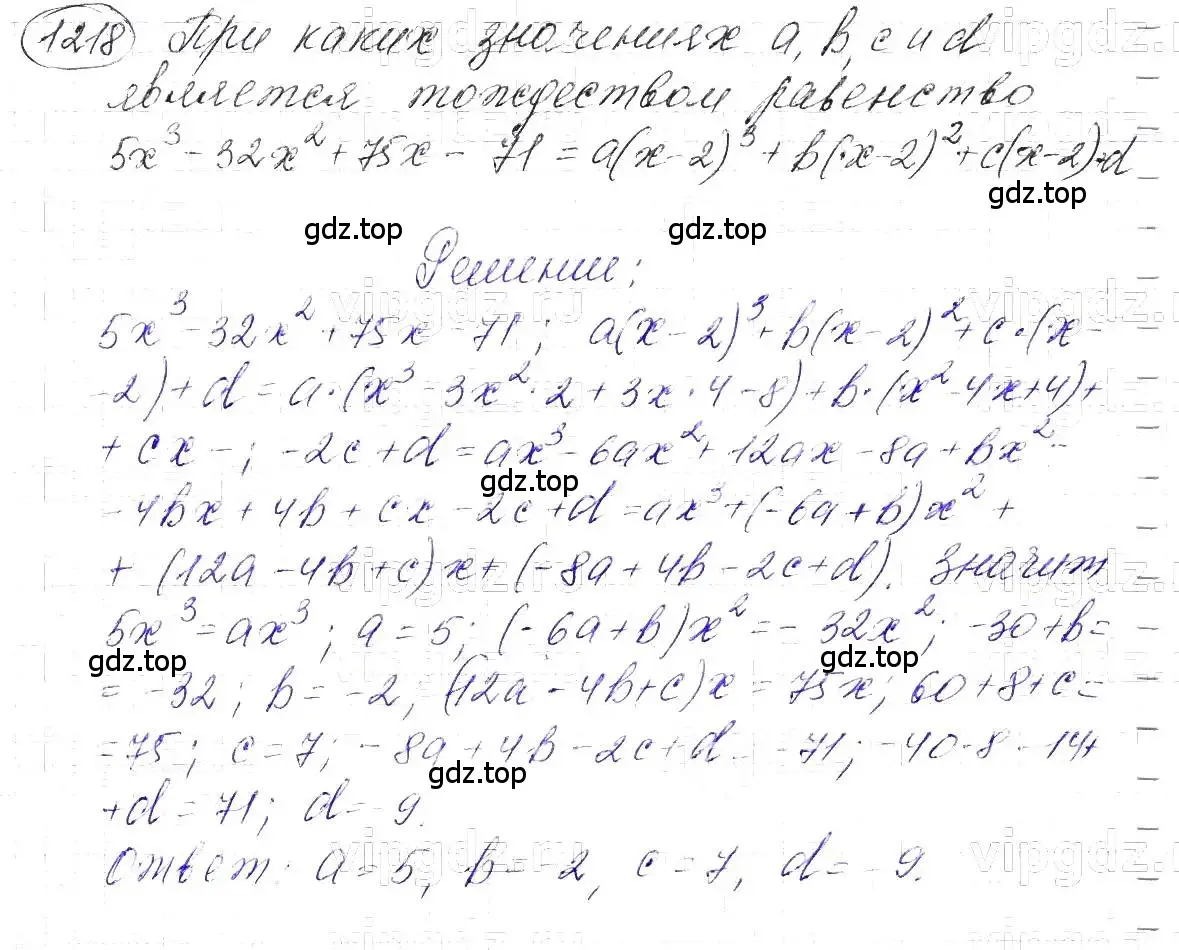 1218 При каких значениях a, b, c и d
является тождеством равенство
5x³ - 32x² + 75x - 71 = a(x-2)³ + b(x-2)² + c(x-2)+d
gdz.top
gdz.top gdz.top
Решении;
5x³ - 32x² + 75x - 71; a(x-2)³ + b(x-2)² + c·(x-
-2) + d = a·(x³ - 3x²·2 + 3x·4 - 8) + b·(x² - 4x+4)+
+ cx - ; -2c + d = ax³ - 6ax² + 12ax - 8a + bx² -
gdz.top
- 4bx + 4b + cx - 2c + d = ax³ + (-6a + b)x² +
+ (12a - 4b + c)x + (-8a + 4b - 2c + d). Значит
5x³ = ax³; a = 5; (-6a + b)x² = - 32x²; -30 + b =
gdz.top gdz.top
= -32; b = -2; (12a - 4b + c)x = 75x; 60 + 8 + c =
= 75; c = 7; - 8a + 4b - 2c + d = -71; -40 - 8 - 14 +
gdz.top
+ d = 71; d = - 9.
Ответ: a = 5, b = -2, c = 7, d = - 9.
vipgdz.ru